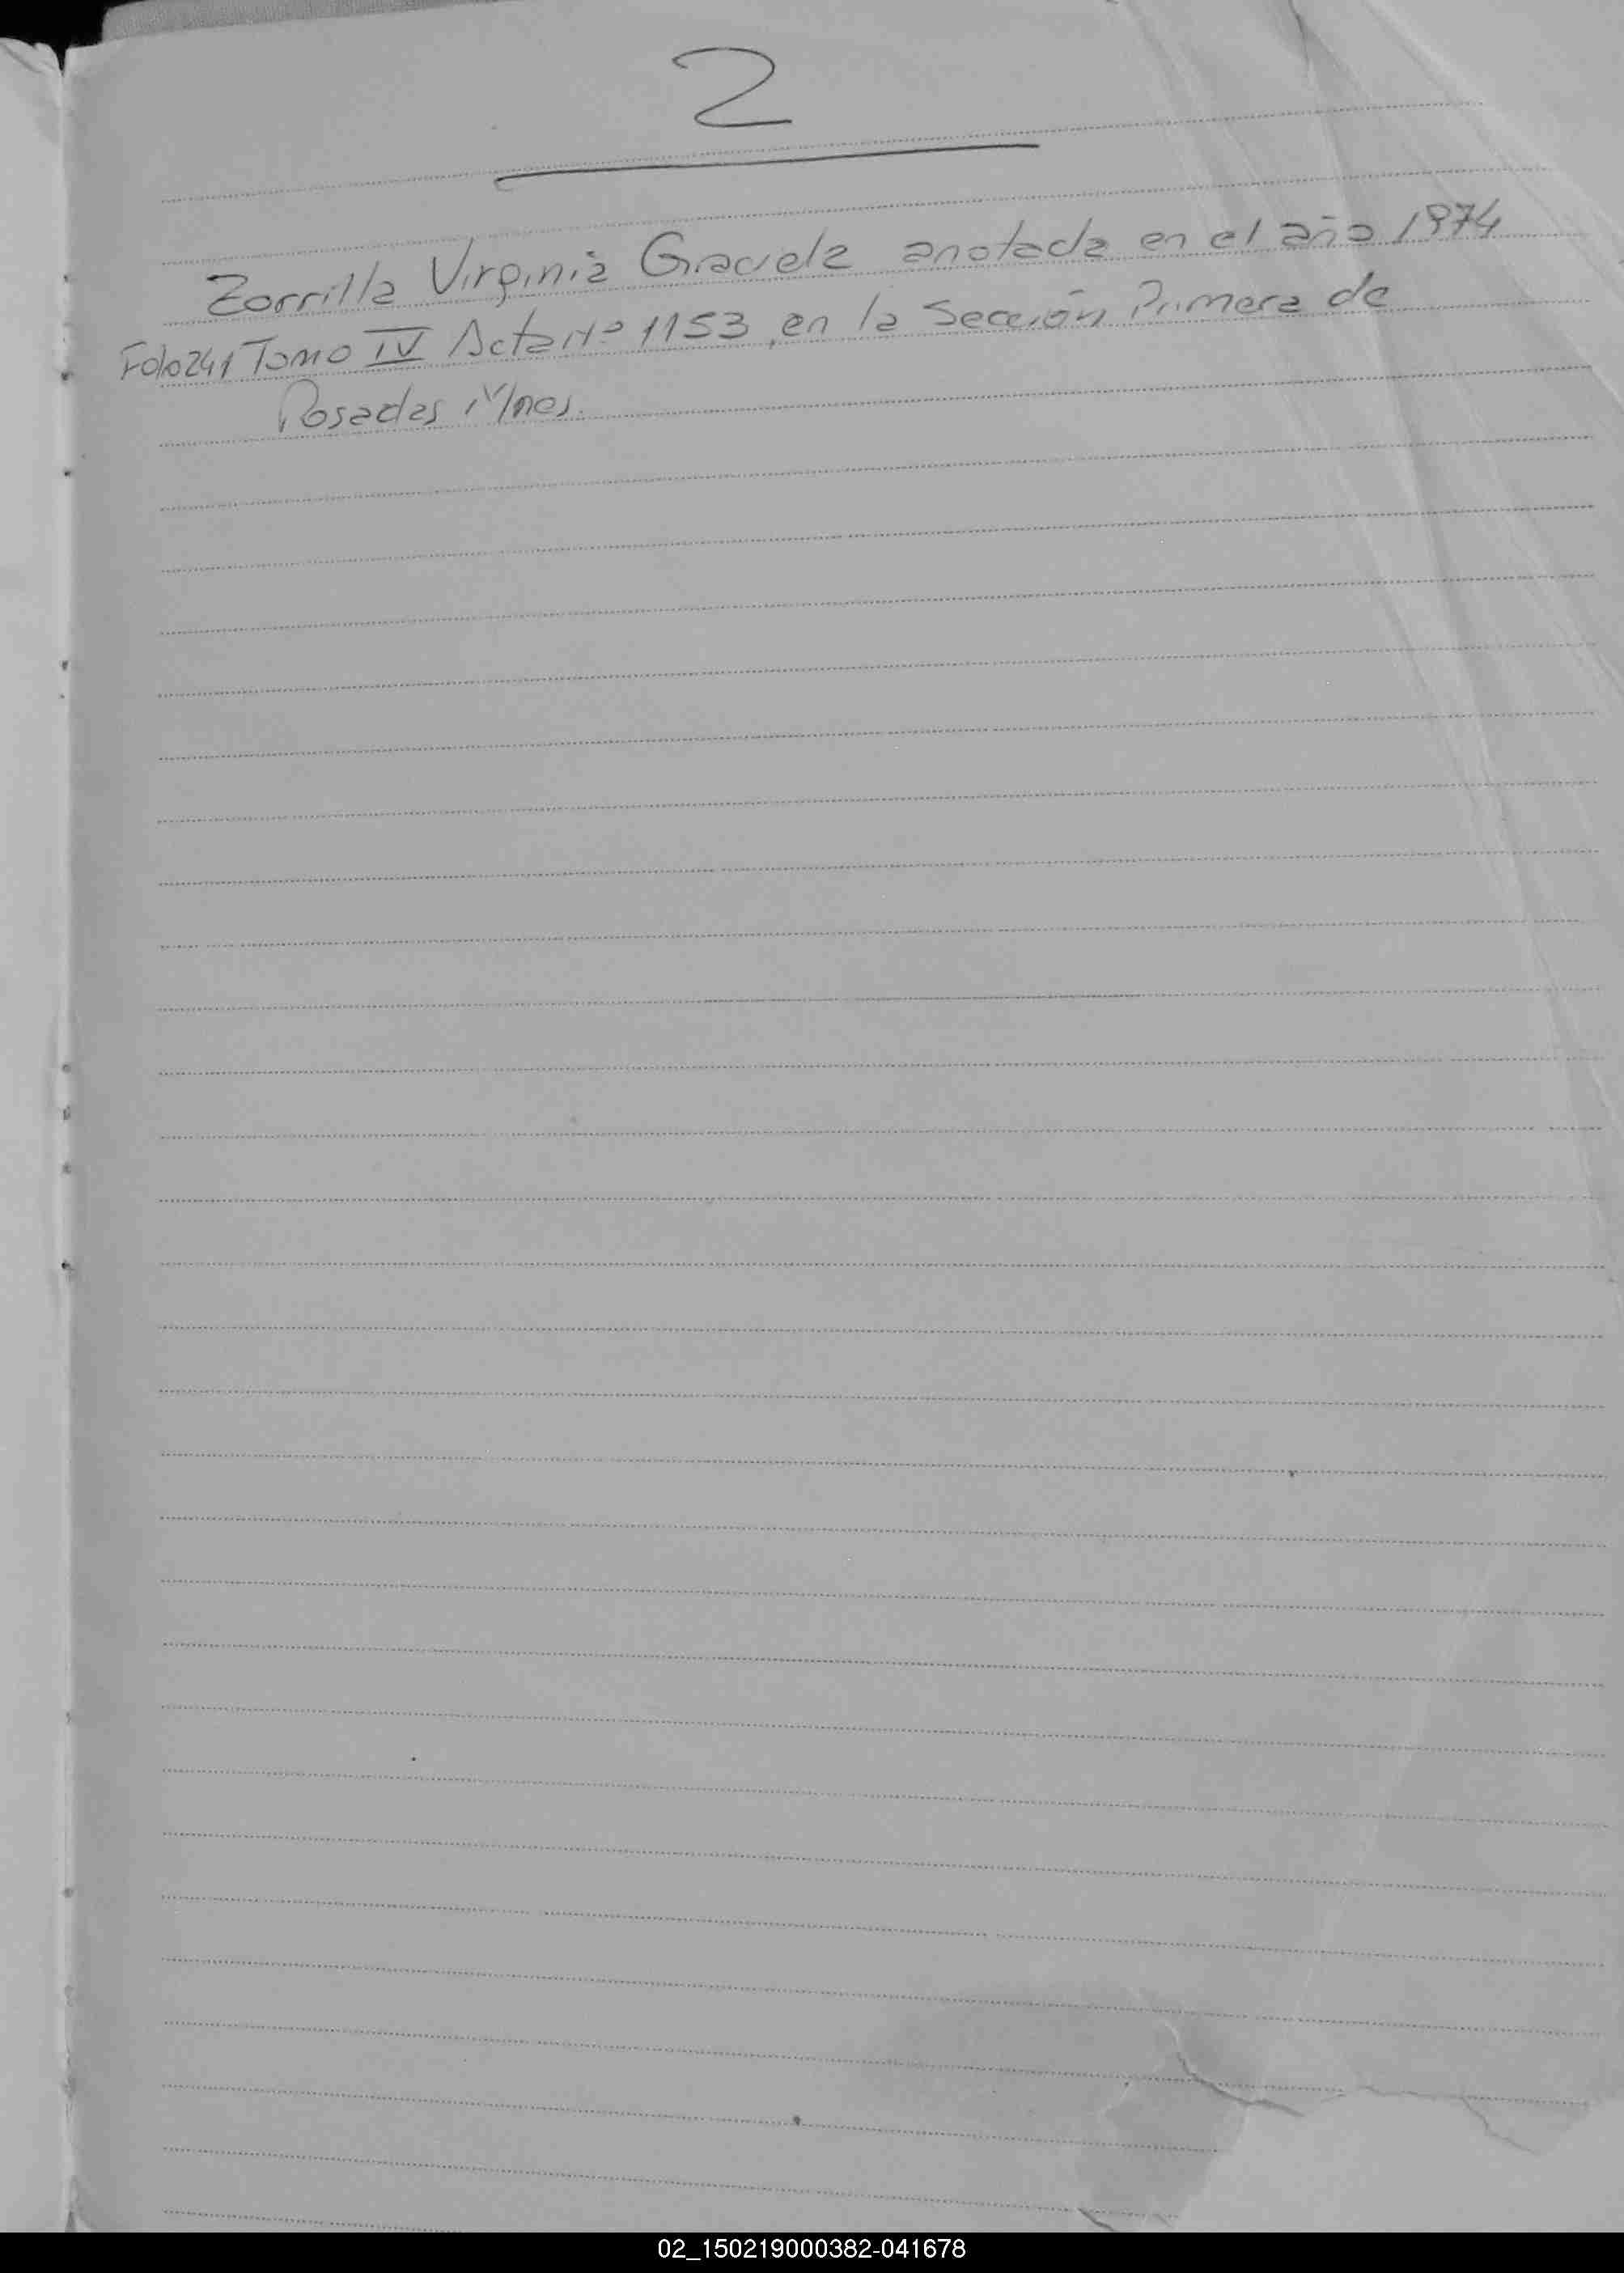 Z
Zorrilla Virginia Graciela anotada en el año 1974
Folio 241 Tomo IV Acta Nº 1153, en la Sección Primera de
Posadas Mnes.
02_150219000382-041678